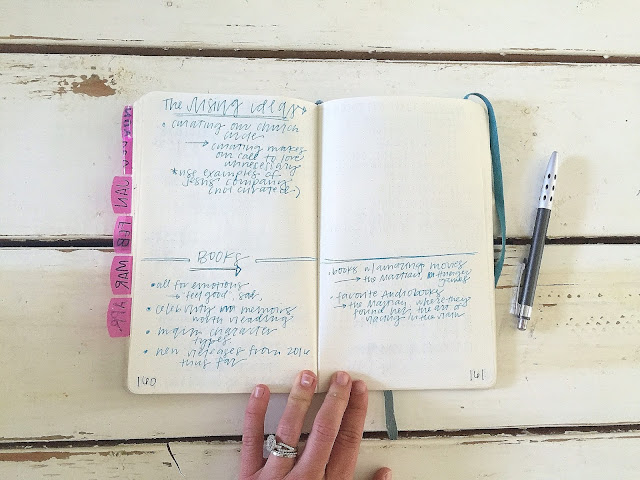 The Rising ideas
• curating our church
circles
→ curating makes
our call to love
unnecessary
*use examples of
Jesus' company
(not curated :)
JAN
FEB
MAR
APR
BOOKS
• all for emotions
→ feel good, sad,
• celebrity memoirs
worth reading
• main character
types
• new releases from 2016
thus far
160
• books w/ amazing movies
→ the Martian, Hunger
games
• favorite Audiobooks
→ the Martian, where they
found her, the art of
racing in the rain
161